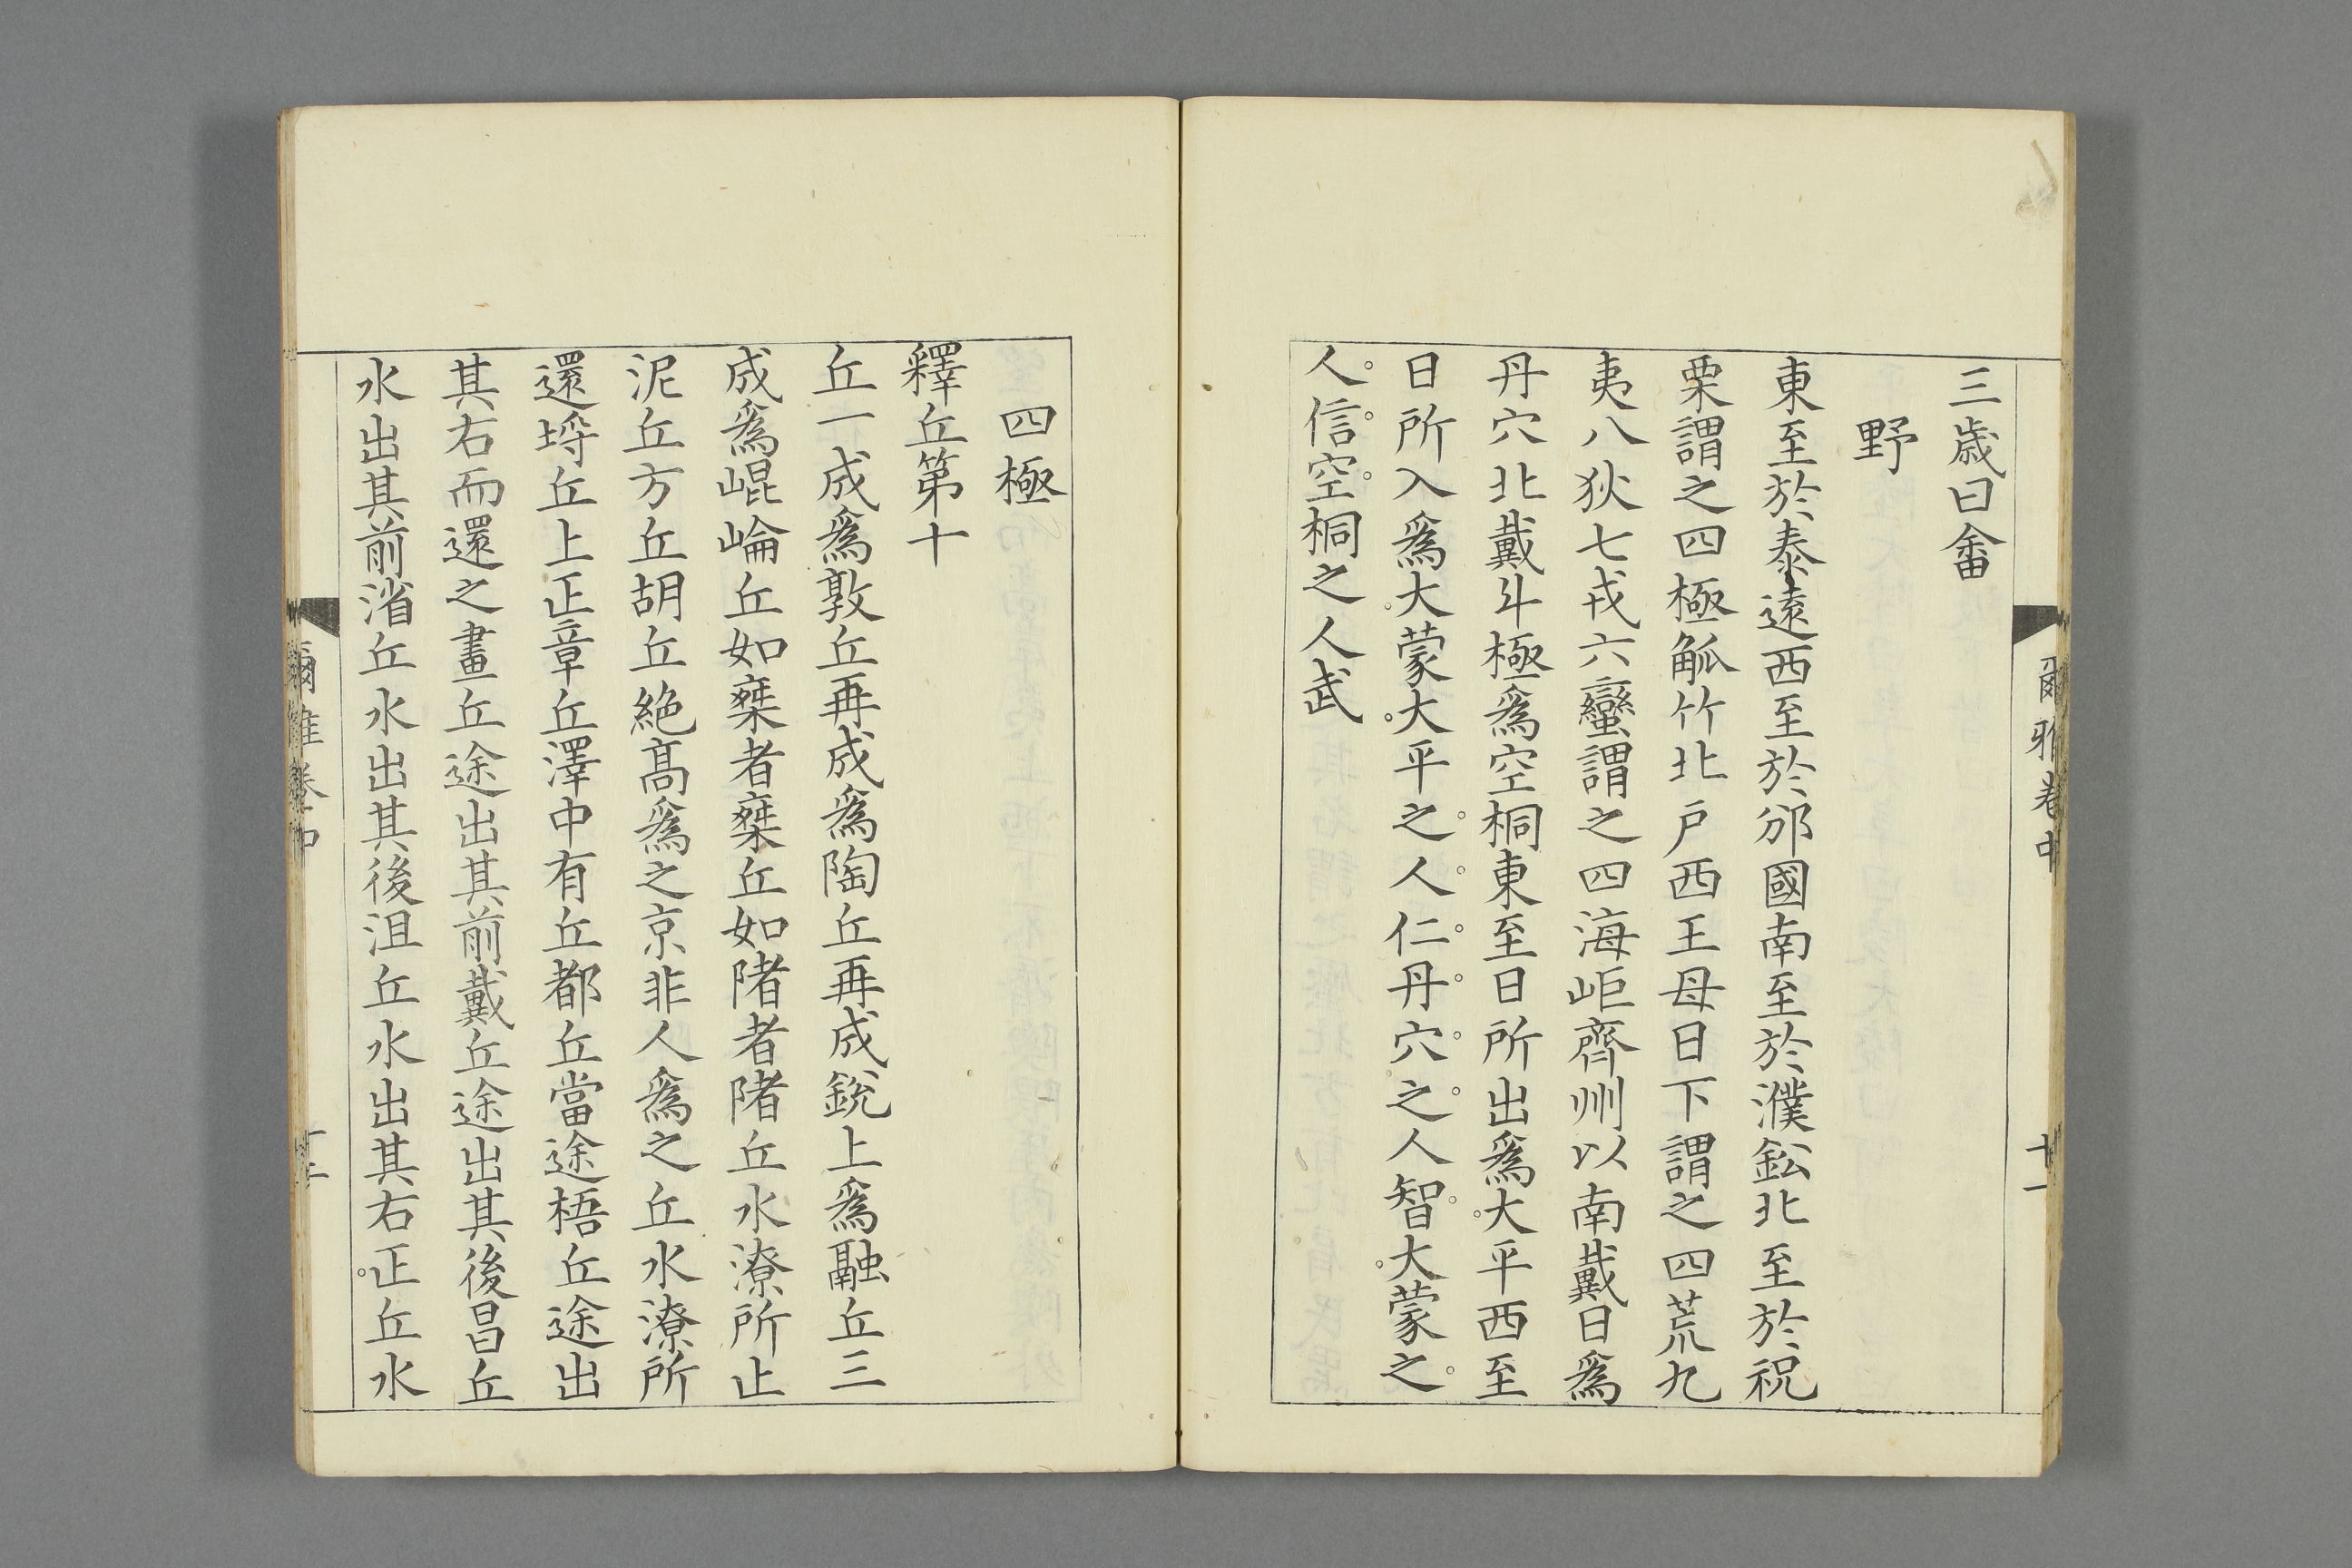 爾雅卷中 十一
三歲曰畬
野
東至於泰遠西至於邠國南至於濮鈆北至於祝
栗謂之四極觚竹北戶西王母日下謂之四荒九
夷八狄七戎六蠻謂之四海岠齊州以南戴日爲
丹穴北戴斗極爲空桐東至日所出爲大平西至
日所入爲大蒙大平之人仁丹穴之人智大蒙之
人信空桐之人武
四極
釋丘第十
丘一成爲敦丘再成爲陶丘再成銳上爲融丘三
成爲崐崘丘如椉者椉丘如陼者陼丘水潦所止
泥丘方丘胡丘絕高爲之京非人爲之丘水潦所
還埒丘上正章丘澤中有丘都丘當途梧丘途出
其右而還之畫丘途出其前戴丘途出其後昌丘
水出其前渻丘水出其後沮丘水出其右正丘水
爾雅卷中